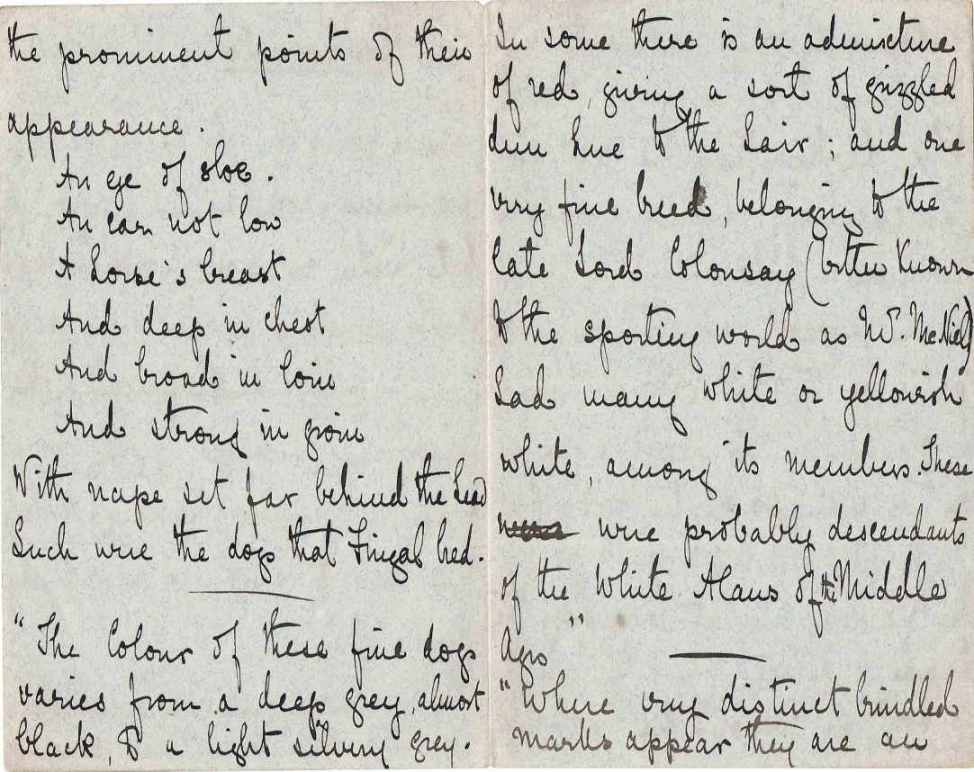 the prominent points of their
appearance.
An eye of sloe.
An ear not low
A horse's breast
And deep in chest
And broad in loin
And strong in groin
With nape set far behind the head
Such were the dogs that Fingal bred.
"The Colour of these fine dogs
varies from a deep grey, almost
black, to a light silvery grey.
In some there is an admixture
of red, giving a sort of grizzled
dun hue to the hair; and one
very fine breed, belonging to the
late Lord Colonsay (better known
to the sporting world as W. McNiel)
had many white or yellowish
white, among its members. These
were probably descendants
of the White Alans of the Middle
Ages"
"Where very distinct brindled
marks appear they are an